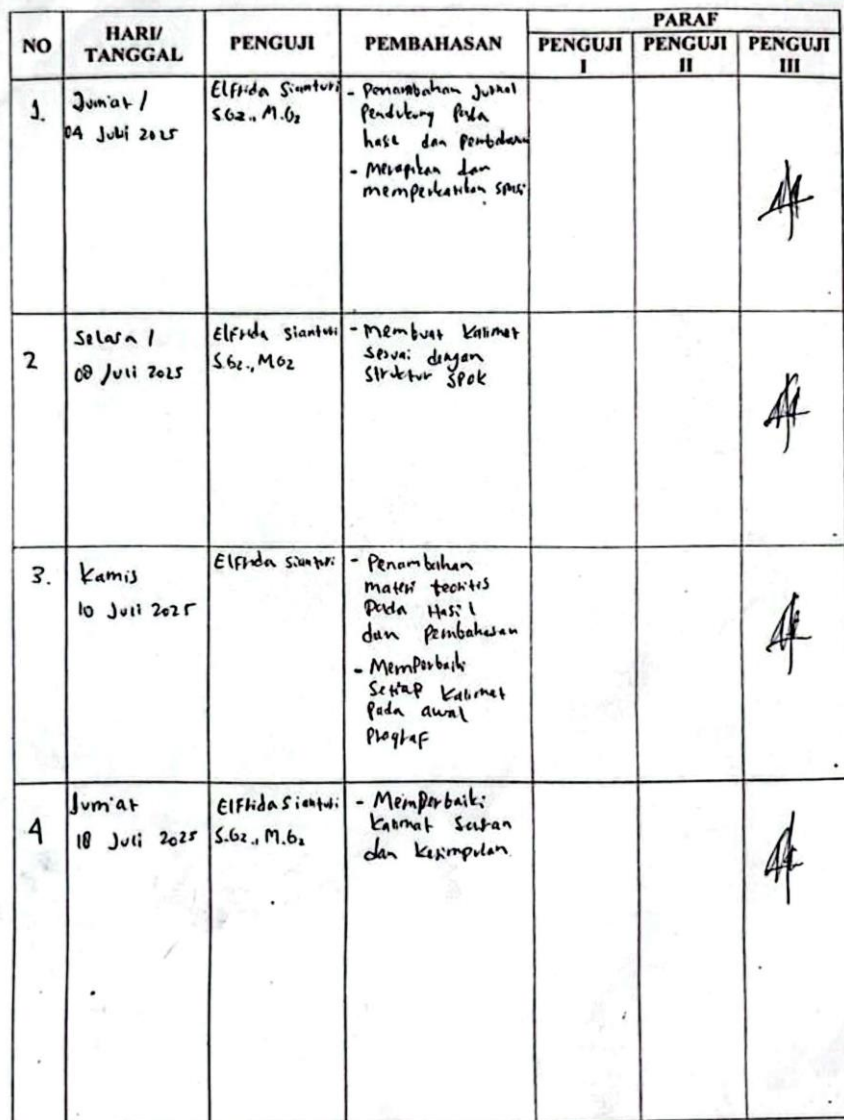 NO
HARI/
TANGGAL
PENGUJI
PEMBAHASAN
PARAF
PENGUJI
I
PENGUJI
II
PENGUJI
III
1.
Jum'at /
04 Juli 2025
Elfrida Sianturi
S.Gz., M.Gz
- Penambahan Jurnal
Pendukung Pada
hasil dan Pembahasan
- Merapikan dan
memperbaiki
2
Selasa /
08 Juli 2025
Elfrida Sianturi
S.Gz., M.Gz
- Membuat Kalimat
Sesuai dengan
Struktur SPOK
3.
Kamis
10 Juli 2025
Elfrida Sianturi
- Penambahan
materi teoritis
Pada Hasil
dan Pembahasan
- Memperbaiki
Setiap Kalimat
Pada awal
4
Jum'at
18 Juli 2025
Elfrida Sianturi
S.Gz., M.Gz
- Memperbaiki
Kalimat Saran
dan Kesimpulan